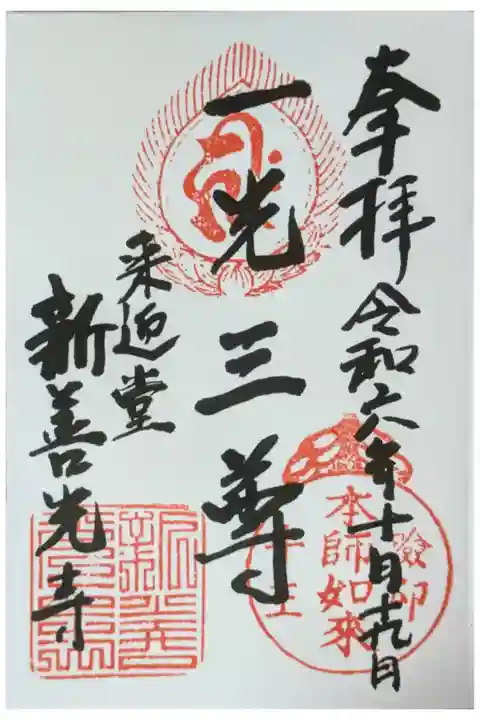 奉拝 令和六年十月日
一光三尊
来迎堂
新善光寺
本師如來